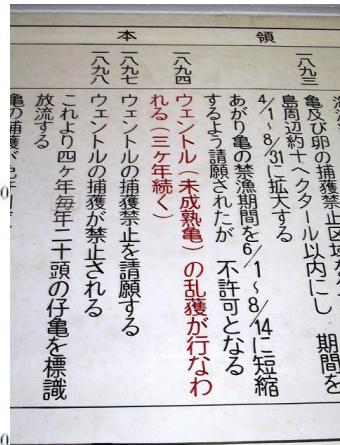 領本
一八九三
亀及び卵の捕獲禁止区域を
島周辺約十ヘクタール以内にし 期間を
4/1〜8/31に拡大する
あがり亀の禁漁期間を6/1〜8/14に短縮
するよう請願されたが 不許可となる
一八九四
ウェントル(未成熟亀)の乱獲が行なわ
れる(三ヶ年続く)
一八九七
ウェントルの捕獲禁止を請願する
一八九八
ウェントルの捕獲が禁止される
これより四ヶ年毎年二十頭の仔亀を標識
放流する
亀の捕獲が